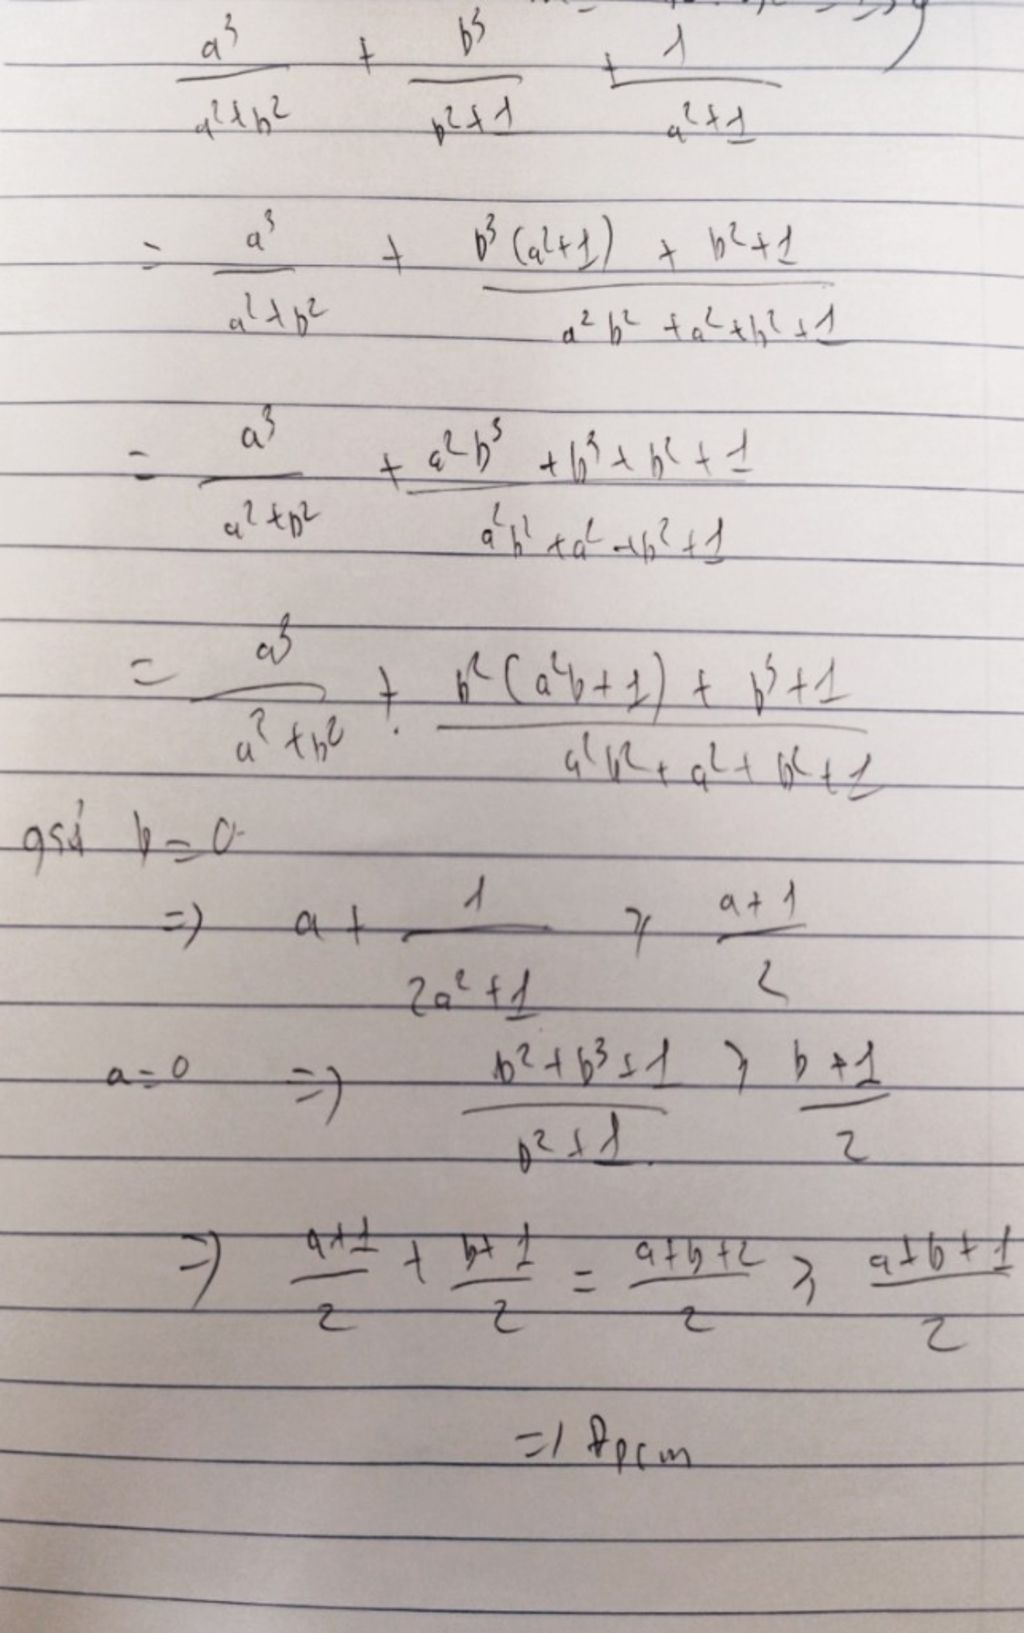 a³/(a²+b²) + b³/(b²+1) + 1/(a²+1)
= a³/(a²+b²) + (b³(a²+1) + b²+1)/(a²b²+a²+b²+1)
= a³/(a²+b²) + (a²b³+b³+b²+1)/(a²b²+a²+b²+1)
= a³/(a²+b²) + (b²(a²b+1) + b³+1)/(a²b²+a²+b²+1)
gsử b=0
=> a + 1/(2a²+1) ≥ (a+1)/2
a=0 => (b²+b³+1)/(b²+1) ≥ (b+1)/2
=> (a+1)/2 + (b+1)/2 = (a+b+2)/2 ≥ (a+b+1)/2
=> đpcm